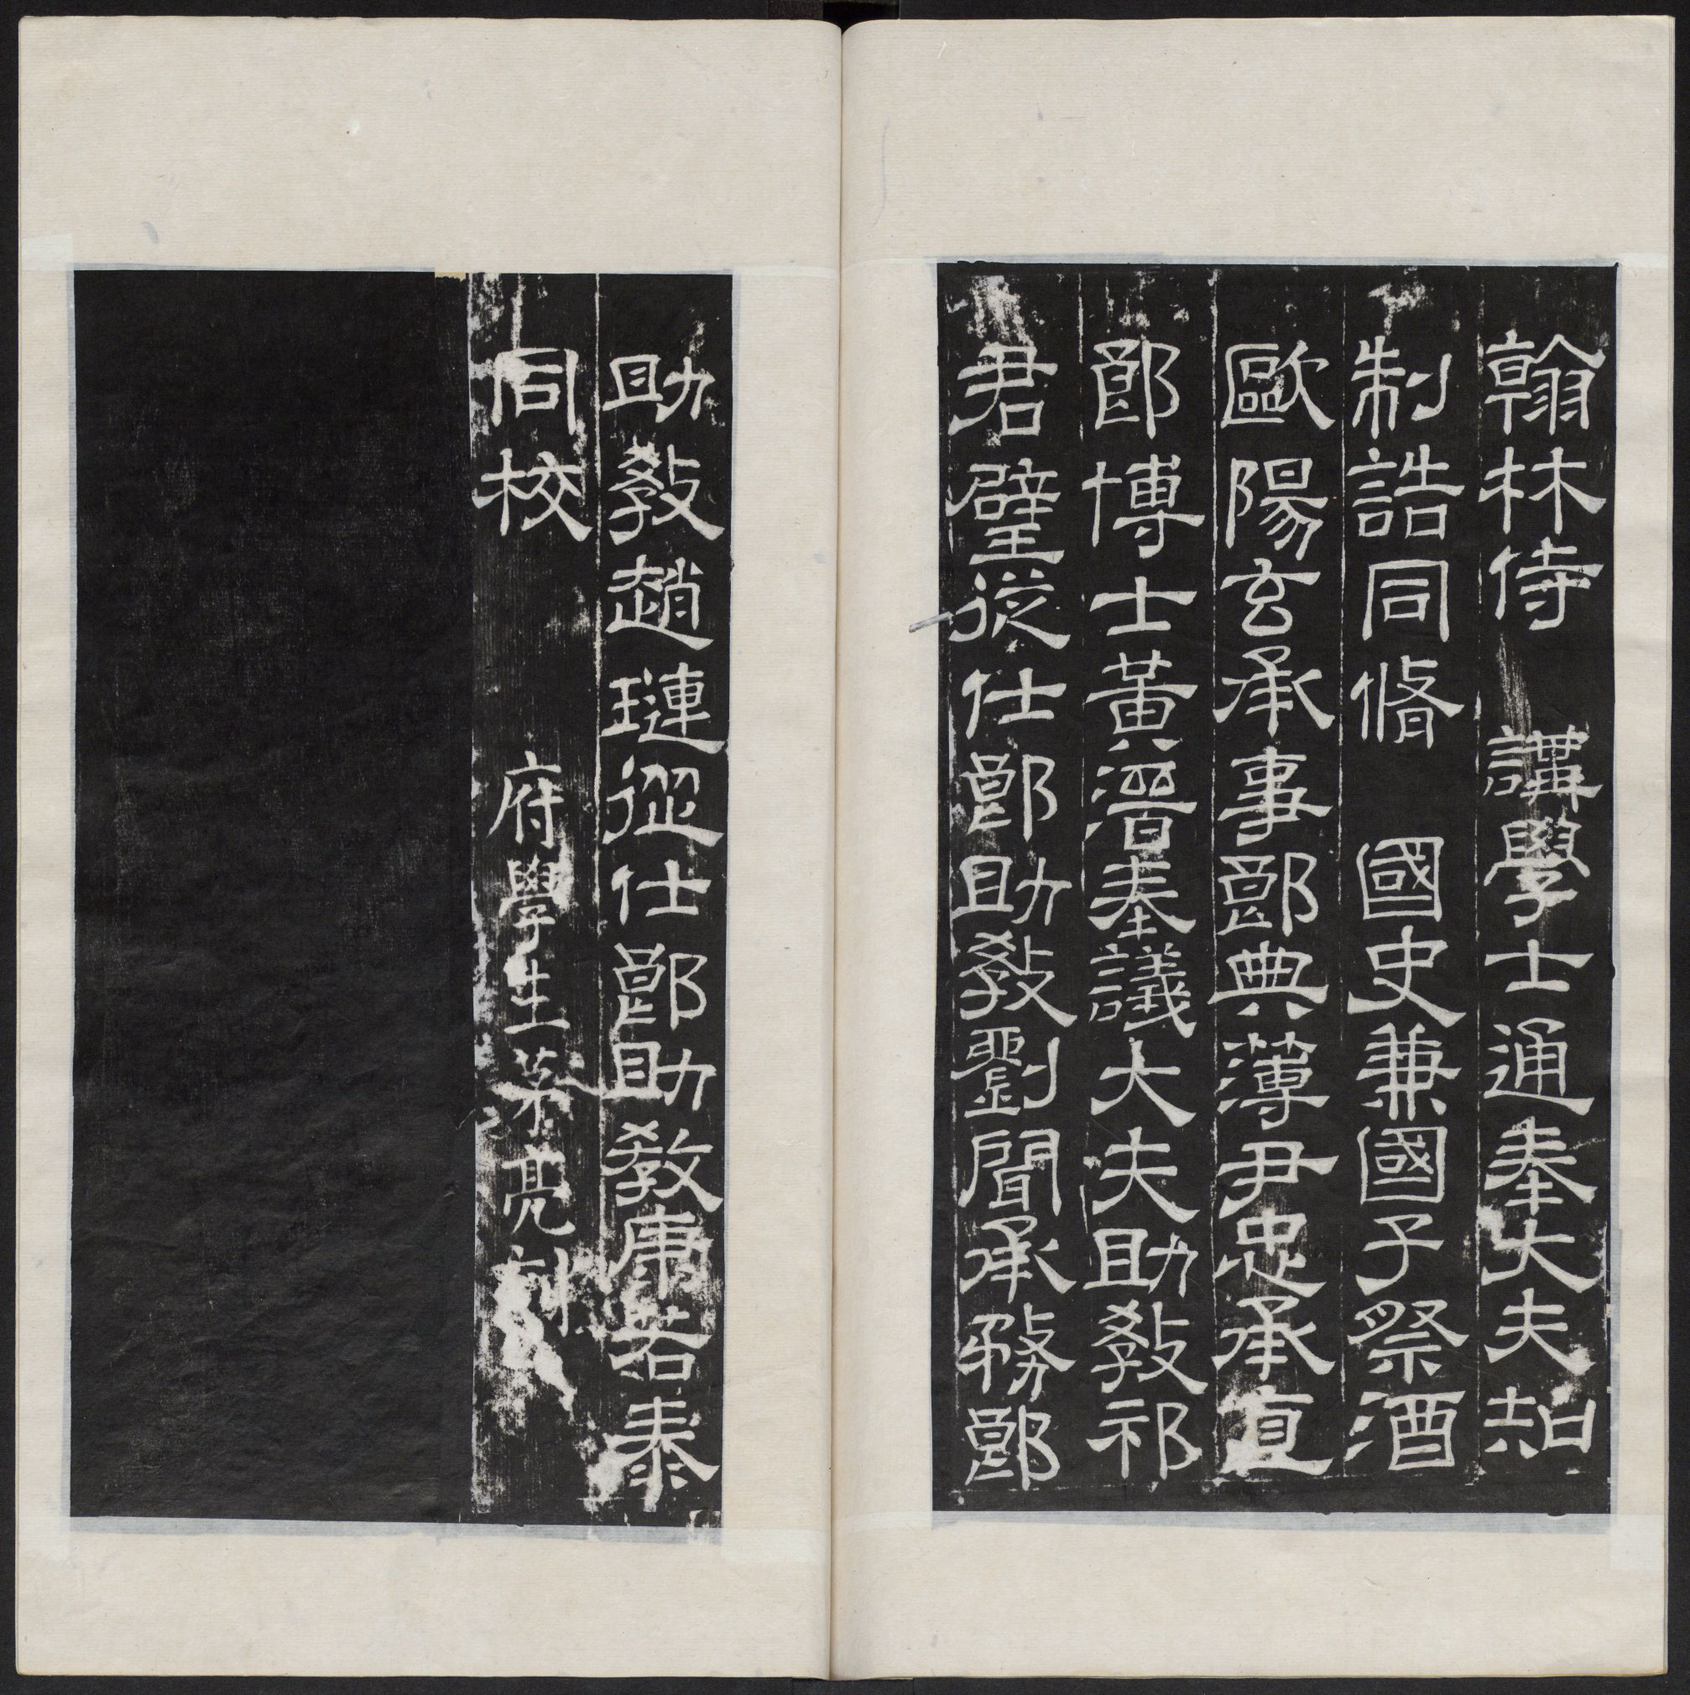 翰林侍講學士通奉大夫知
制誥同脩國史兼國子祭酒
歐陽玄承事郎典薄尹忠承直
郎博士黃溍奉議大夫助教祁
君璧從仕郎助教劉聞承務郎
助教趙璉從仕郎助教康若泰
同校
府學生茅亮刻